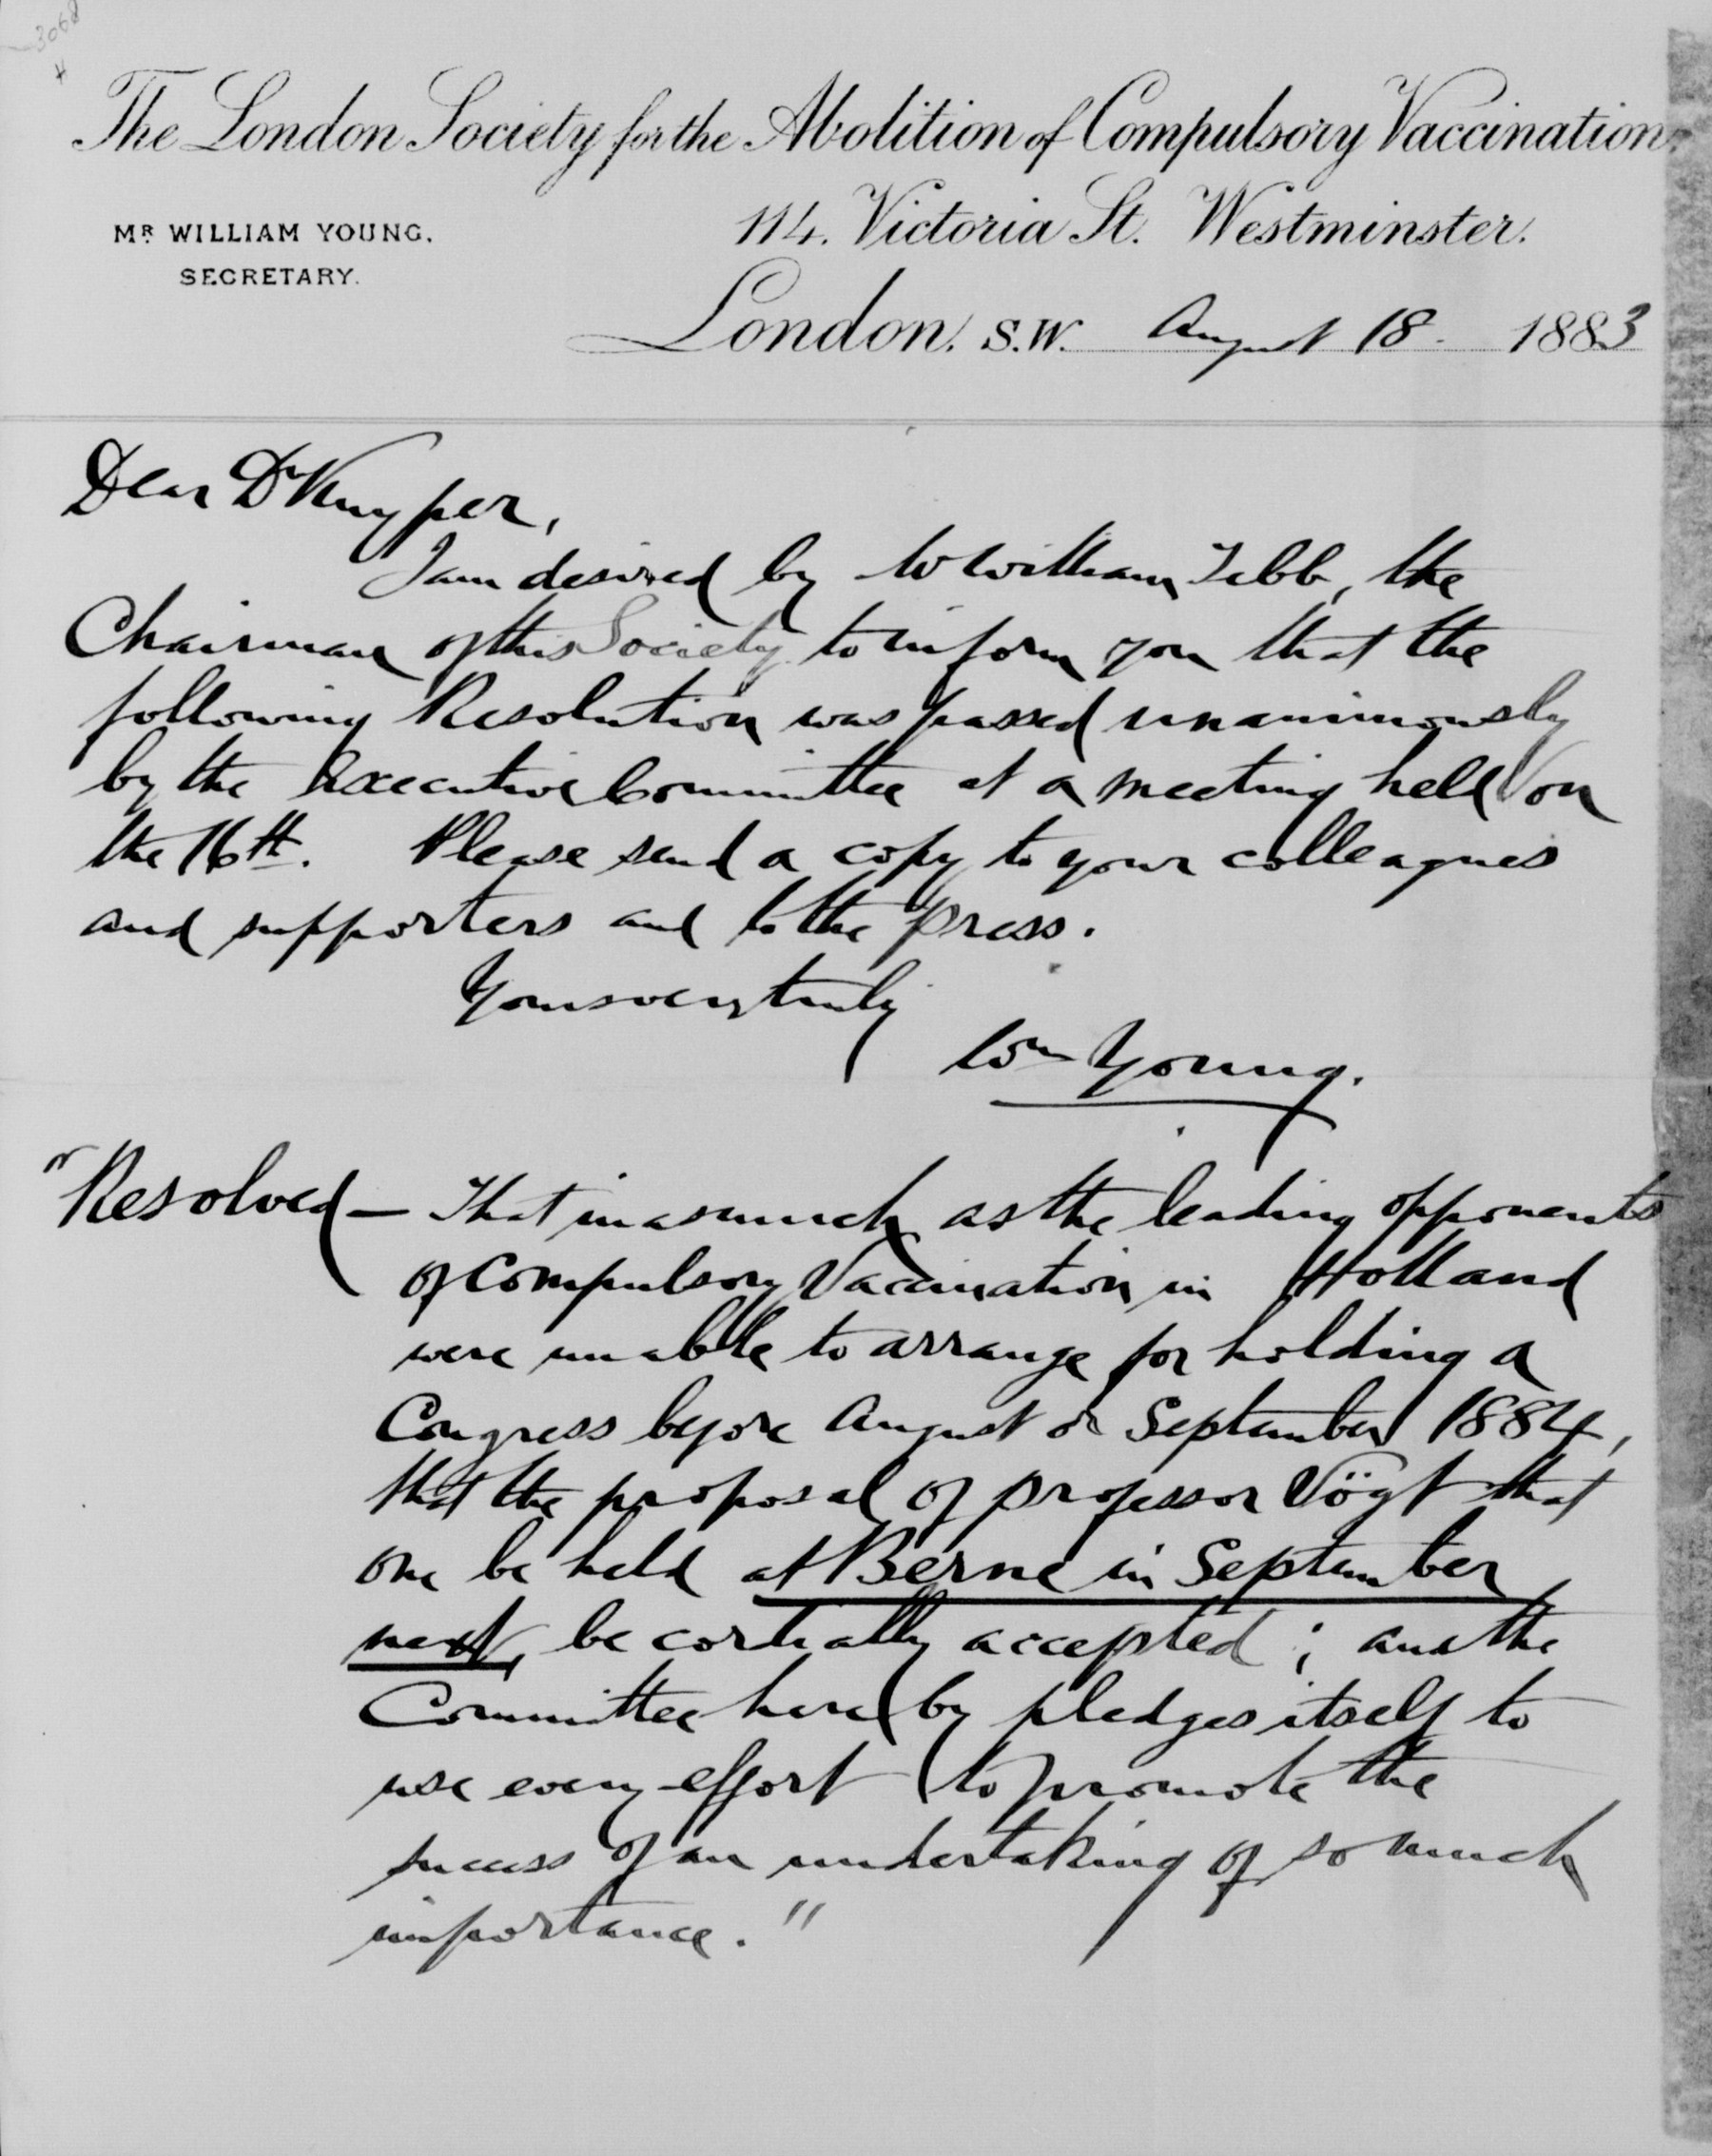 3068
The London Society for the Abolition of Compulsory Vaccination.
114. Victoria St. Westminster.
MR WILLIAM YOUNG.
SECRETARY.
London. S.W. August 18. 1883
Dear Dr Kuyper,
I am desired by Mr William Tebb, the
Chairman of this Society to inform you that the
following Resolution was passed unanimously
by the Executive Committee at a meeting held on
the 16th. Please send a copy to your colleagues
and supporters and to the press.
Yours very truly
Wm Young.
"Resolved — That inasmuch as the leading opponents
of Compulsory Vaccination in Holland
were unable to arrange for holding a
Congress before August or September 1884,
that the proposal of Professor Vögt that
one be held at Berne in September
next, be cordially accepted; and the
Committee hereby pledges itself to
use every effort to promote the
success of an undertaking of so much
importance."